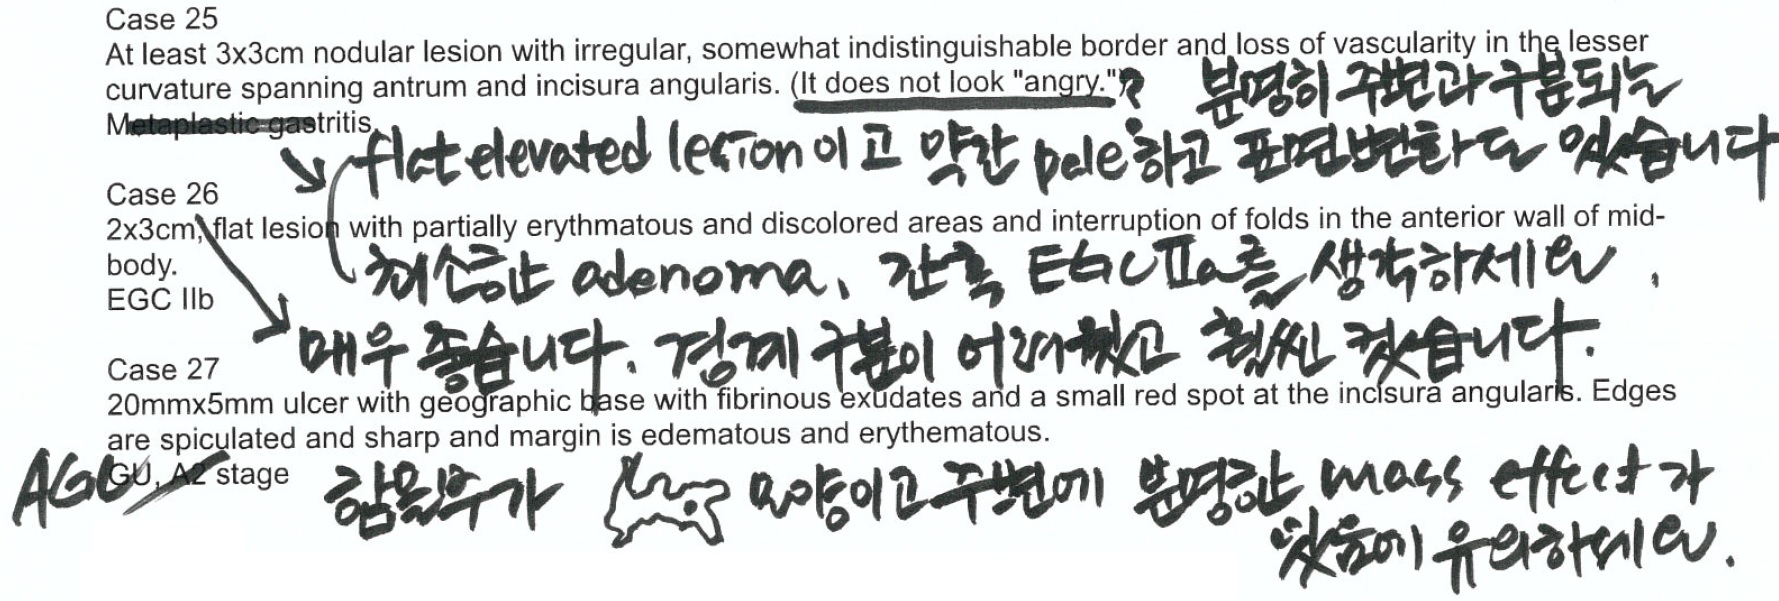 Case 25
At least 3x3cm nodular lesion with irregular, somewhat indistinguishable border and loss of vascularity in the lesser
curvature spanning antrum and incisura angularis. (It does not look "angry.")? 분명히 주변과 구분되는
Metaplastic gastritis.
flat elevated lesion이고 약간 pale하고 표면변화도 있습니다
Case 26
2x3cm, flat lesion with partially erythmatous and discolored areas and interruption of folds in the anterior wall of mid-
body. 최소한 adenoma, 간혹 EGC IIa를 생각하세요.
EGC IIb
매우 좋습니다. 경계 구분이 어려웠고 훨씬 컸습니다.
Case 27
20mmx5mm ulcer with geographic base with fibrinous exudates and a small red spot at the incisura angularis. Edges
are spiculated and sharp and margin is edematous and erythematous.
GU, A2 stage
AGC 함몰부가 모양이고 주변에 분명한 mass effect가
있음에 유의하세요.